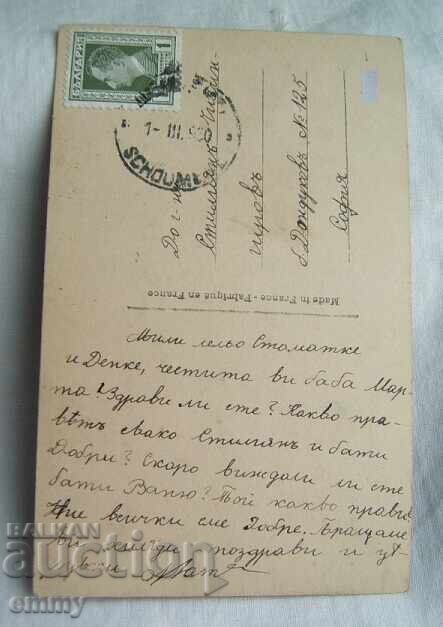 БЪЛГАРИЯ
1
1-III.930
SCHOUM
До г-н
Стилиянъ
б. Дондуковъ № 125
София
Made in France - Fabriqué en France
Мили лельо Стоматке
и Денке, честита ви баба Мар-
та! Здрави ли сте? Какво пра-
вѣтъ свако Стилиянъ и бати
Добри? Скоро виждали ли сте
бати Ваню? Той какво прави?
Ние всички сме добре. Пращаме
ви хиляди поздрави и цѣ-
лувки
BALKAN
auction
emmy